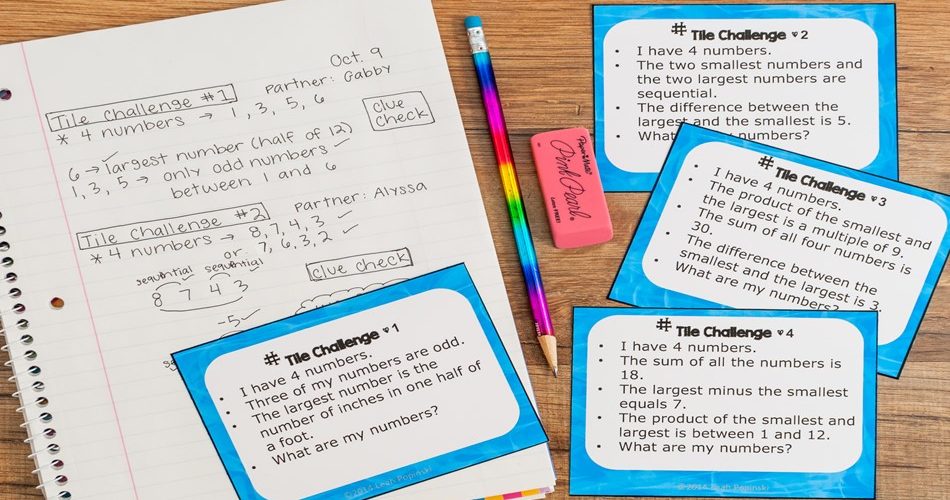 Oct. 9
Tile Challenge #1 Partner: Gabby
* 4 numbers → 1, 3, 5, 6
clue
check
6 → largest number (half of 12)
1, 3, 5 → only odd numbers
between 1 and 6
Tile Challenge #2 Partner: Alyssa
* 4 numbers → 8, 7, 4, 3
or 7, 6, 3, 2
sequential sequential
8 7 4 3
clue check
-5
# Tile Challenge ♥ 1
• I have 4 numbers.
• Three of my numbers are odd.
• The largest number is the
number of inches in one half of
a foot.
• What are my numbers?
©2014 Leah Popinski
Paper Mate
Pink Pearl
# Tile Challenge ♥ 2
• I have 4 numbers.
• The two smallest numbers and
the two largest numbers are
sequential.
• The difference between the
largest and the smallest is 5.
• What my numbers?
# Tile Challenge ♥ 3
• I have 4 numbers.
• The product of the smallest and
the largest is a multiple of 9.
• The sum of all four numbers is
30.
• The difference between the
smallest and the largest is 3.
• What are my numbers?
# Tile Challenge ♥ 4
• I have 4 numbers.
• The sum of all the numbers is
18.
• The largest minus the smallest
equals 7.
• The product of the smallest and
largest is between 1 and 12.
• What are my numbers?
©2014 Leah Popinski